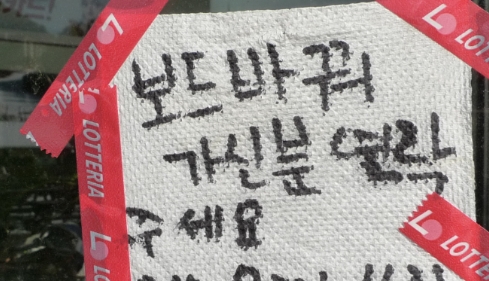 보드바꿔
가신분 연락
주세요
LOTTERIA
LOTTERIA
LOTTERIA
LOTTERIA